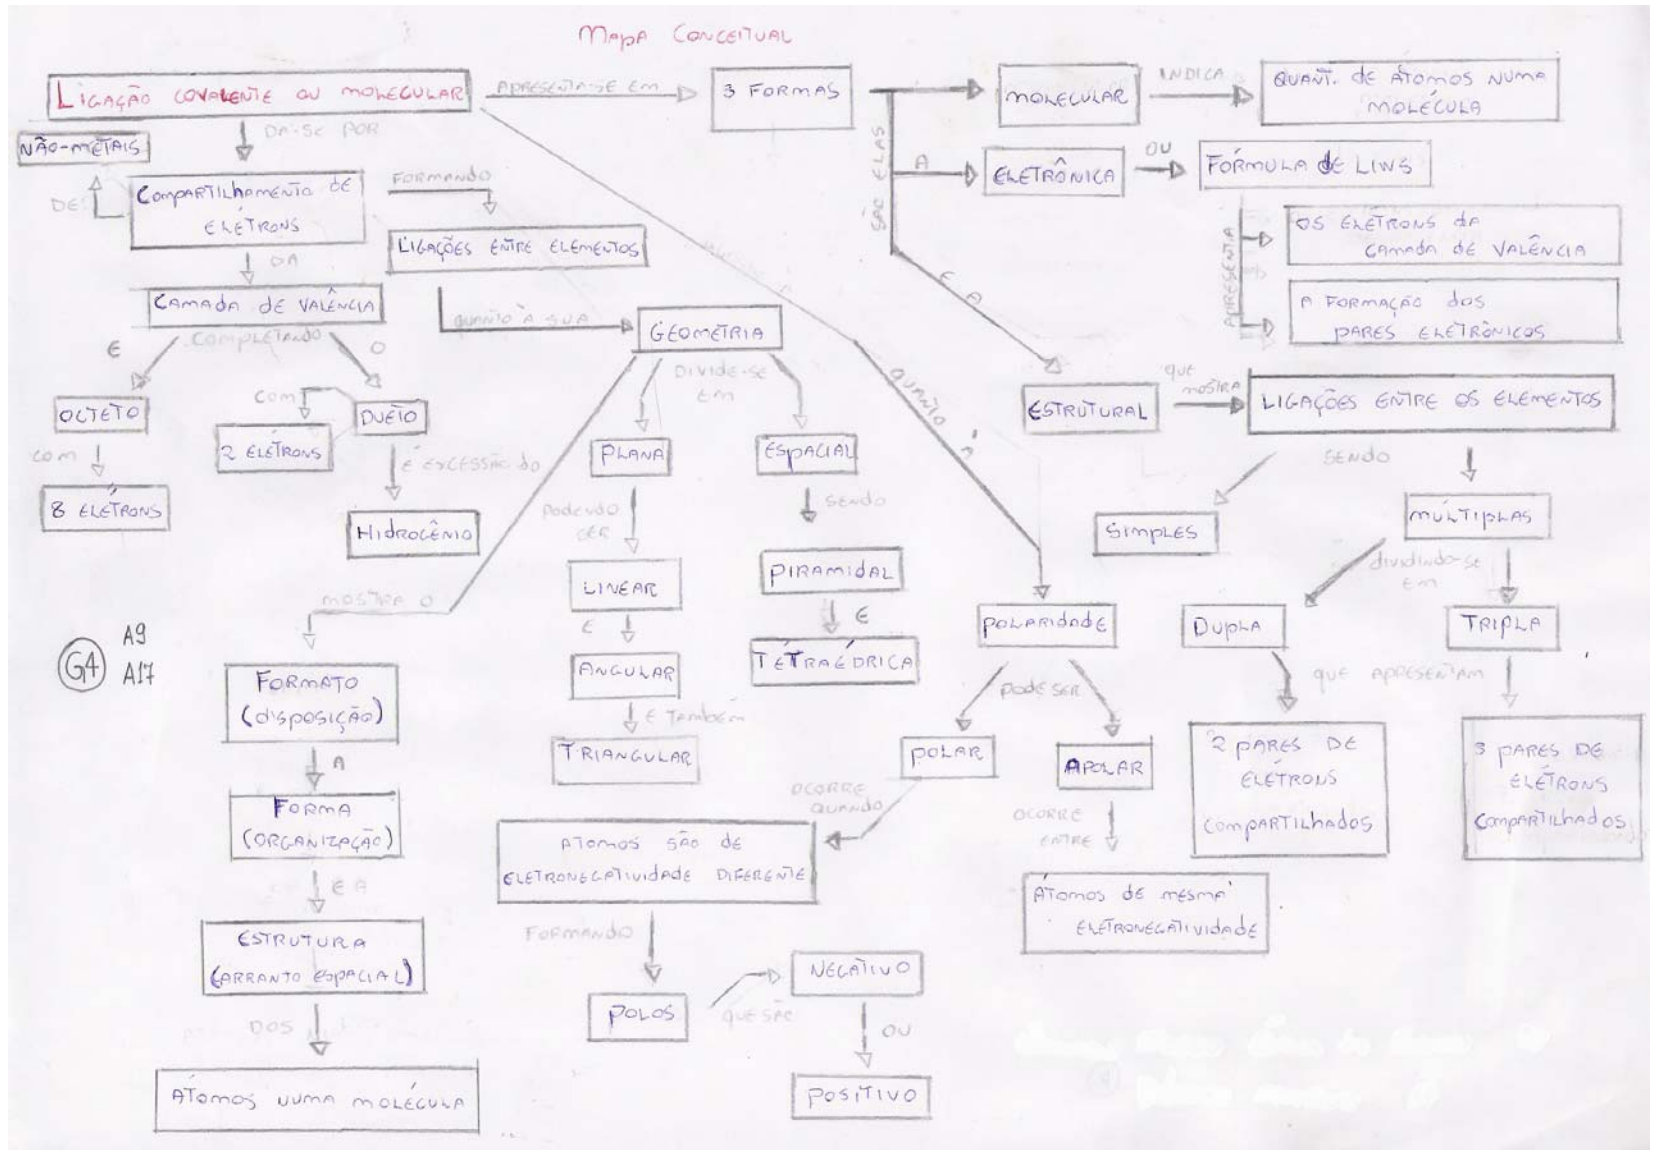 MAPA CONCEITUAL
LIGAÇÃO COVALENTE OU MOLECULAR
APRESENTA-SE EM
3 FORMAS
SÃO ELAS
MOLECULAR
INDICA
QUANT. DE ÁTOMOS NUMA
MOLÉCULA
A
ELETRÔNICA
OU
FÓRMULA DE LIWS
APRESENTA
OS ELÉTRONS DA
CAMADA DE VALÊNCIA
A FORMAÇÃO DOS
PARES ELETRÔNICOS
E A
ESTRUTURAL
QUE
MOSTRA
LIGAÇÕES ENTRE OS ELEMENTOS
SENDO
SIMPLES
MÚLTIPLAS
dividindo-SE
EM
DUPLA
TRIPLA
QUE APRESENTAM
2 PARES DE
ELÉTRONS
COMPARTILHADOS
3 PARES DE
ELÉTRONS
COMPARTILHADOS
DA-SE POR
NÃO-METAIS
DE
COMPARTILHAMENTO DE
ELÉTRONS
FORMANDO
LIGAÇÕES ENTRE ELEMENTOS
DA
CAMADA DE VALÊNCIA
COMPLETANDO
E
O
OCTETO
COM
8 ELÉTRONS
DUETO
COM
2 ELÉTRONS
É EXCESSÃO DO
HIDROGÊNIO
QUANTO À SUA
GEOMETRIA
DIVIDE-SE
EM
PLANA
PODENDO
SER
LINEAR
E
ANGULAR
E TAMBÉM
TRIANGULAR
ESPACIAL
SENDO
PIRAMIDAL
E
TETRAÉDRICA
MOSTRA O
FORMATO
(DISPOSIÇÃO)
A
FORMA
(ORGANIZAÇÃO)
E A
ESTRUTURA
(ARRANTO ESPACIAL)
DOS
ÁTOMOS NUMA MOLÉCULA
QUANTO À
POLARIDADE
PODE SER
POLAR
APOLAR
OCORRE
QUANDO
ATOMOS SÃO DE
ELETRONEGATIVIDADE DIFERENTE
FORMANDO
POLOS
QUE SÃO
NEGATIVO
OU
POSITIVO
OCORRE
ENTRE
ÁTOMOS DE MESMA
ELETRONEGATIVIDADE
G4
A9
A17